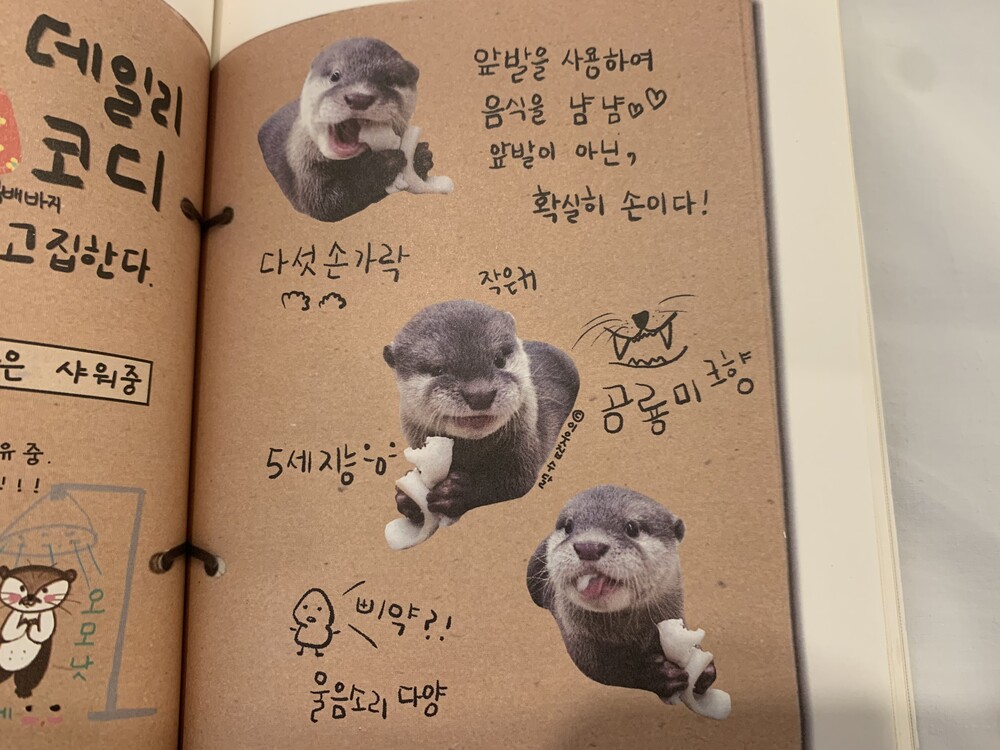 데일리
코디
배바지
고집한다.
은 샤워중
유중.
!!!
오모낫
앞발을 사용하여
음식을 냠냠
앞발이 아닌,
확실히 손이다!
다섯손가락
작은귀
공룡미 초향
5세지능
삐약?!
울음소리 다양